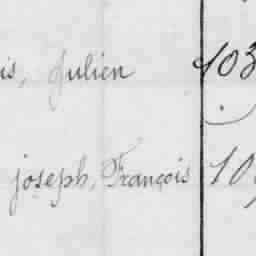 is, Julien 103
joseph, François 10